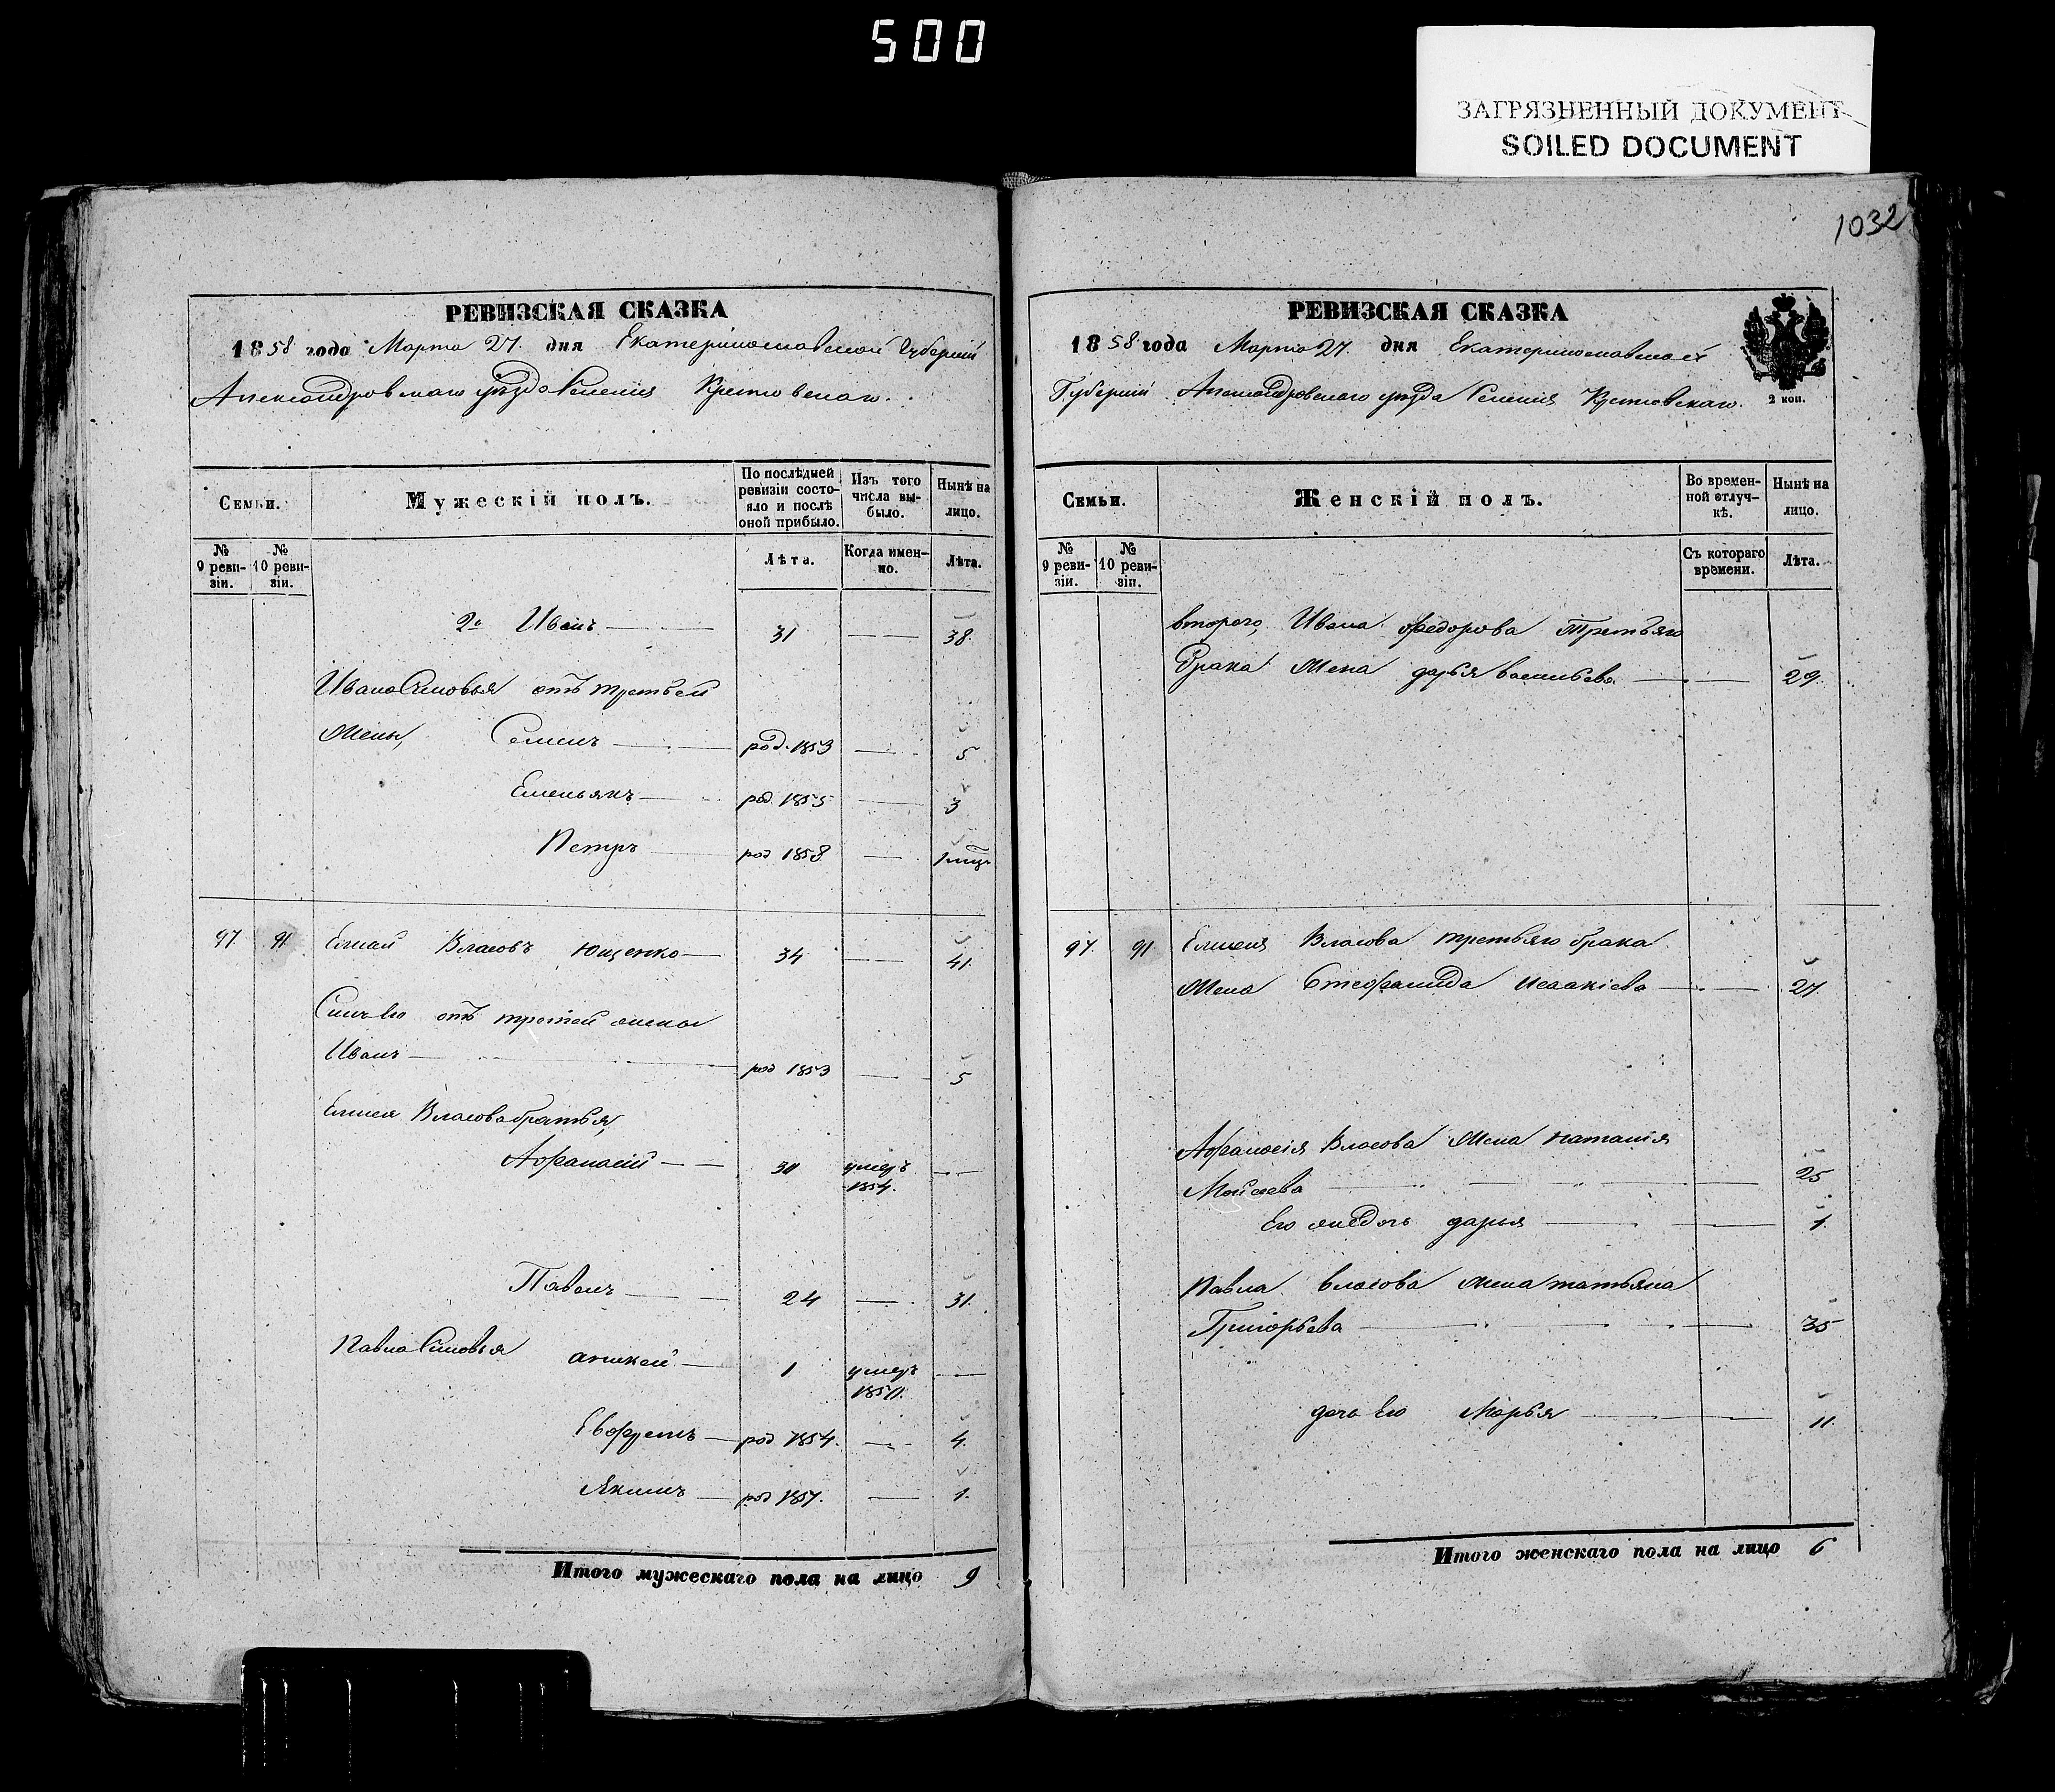 500
ЗАГРЯЗНЕННЫЙ ДОКУМЕНТ
SOILED DOCUMENT
РЕВИЗСКАЯ СКАЗКА
1858 года Марта 27. дня Екатеринославской Губерніи
Александровскаго уѣзда Селенія
Семьи.
Мужескій полъ.
По послѣдней ревизіи состояло и послѣ оной прибыло.
Изъ того числа выбыло.
Нынѣ на лицо.
№ 9 ревизіи.
№ 10 ревизіи.
Лѣта.
Когда именно.
Лѣта.
2й Иванъ 31 38.
Ивана Сыновья отъ третьей
жены, Семенъ род. 1853 5
Емельянъ род. 1855 3
Петръ род 1858 1 мцъ
97 91 Елисей Власовъ Ющенко 34 41.
Сынъ его отъ третей жены
Иванъ род 1853 5
Елисея Власова братья,
Афанасій умеръ 1854.
Павелъ 24 31.
Павла Сыновья 1 умеръ
род 1854. 4.
Якимъ род 1857. 1.
Итого мужескаго пола на лицо 9
1032
РЕВИЗСКАЯ СКАЗКА
1858 года Марта 27. дня Екатеринославской
Губерніи Александровскаго уѣзда Селенія
2 коп.
Семьи.
Женскій полъ.
Во временной отлучкѣ.
Нынѣ на лицо.
№ 9 ревизіи.
№ 10 ревизіи.
Съ котораго времени.
Лѣта.
Втораго, Ивана Федорова третьяго
брака Жена дарья васильева 29.
97. 91 Елисея Власова третьяго брака
Жена Стефанида Исаакіева 27.
Афанасія Власова Жена наталія
Моисеева 25
Его же дочь дарья 1.
Павла власова жена татьяна
Григорьева 35
дочь Его Марья 11.
Итого женскаго пола на лицо 6